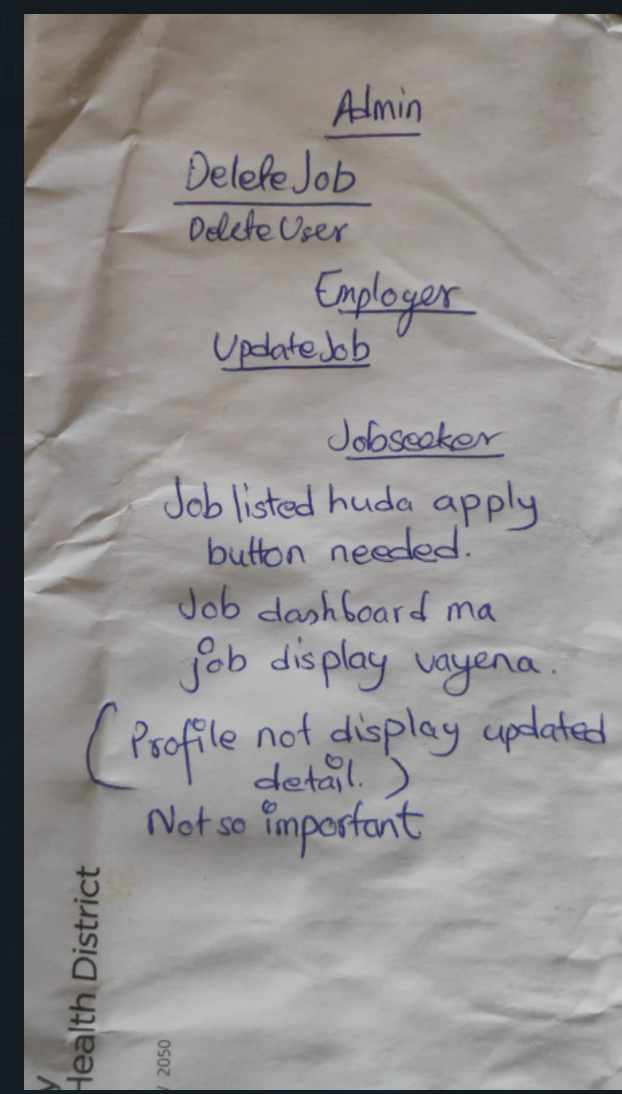 Admin
Delete Job
Delete User
Employer
Update Job
Jobseeker
Job listed huda apply
button needed.
Job dashboard ma
job display vayena.
(Profile not display updated
detail.)
Not so important
Health District
/ 2050